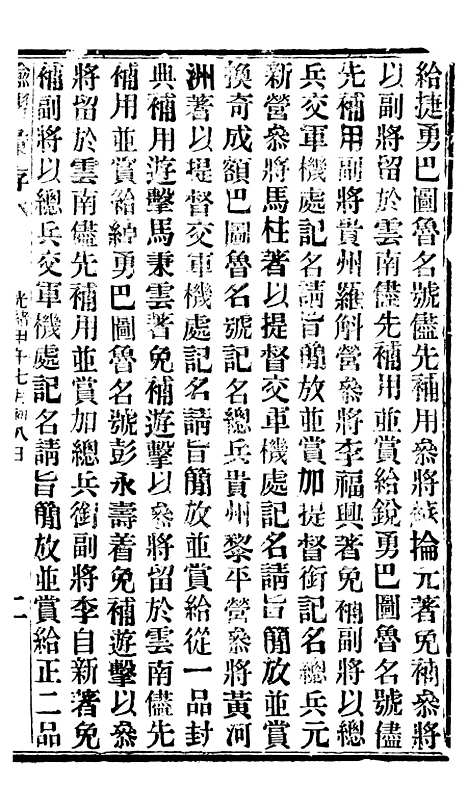 給捷勇巴圖魯名號儘先補用叅將掄元著免補叅將
以副將留於雲南儘先補用並賞給銳勇巴圖魯名號儘
先補用副將貴州羅斛營叅將李福興著免補副將以總
兵交軍機處記名請旨簡放並賞加提督銜記名總兵元
新營叅將馬柱著以提督交軍機處記名請旨簡放並賞
換奇成額巴圖魯名號記名總兵貴州黎平營叅將黃河
洲著以提督交軍機處記名請旨簡放並賞給從一品封
典補用遊擊馬秉雲著免補遊擊以叅將留於雲南儘先
補用並賞給綽勇巴圖魯名號彭永壽着免補遊擊以叅
將留於雲南儘先補用並賞加總兵銜副將李自新著免
補副將以總兵交軍機處記名請旨簡放並賞給正二品
諭摺彙存 光緒甲午七月初八日 二